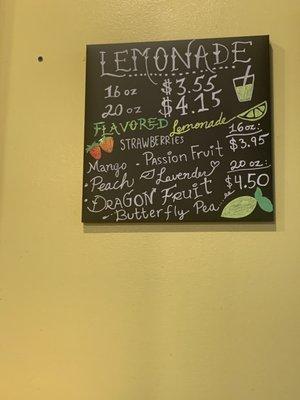 LEMONADE
16 oz $3.55
20 oz $4.15
FLAVORED Lemonade
STRAWBERRIES
16 oz:
$3.95
Mango · Passion Fruit
· Peach Lavender
20 oz:
$4.50
· DRAGON FRUIT
· Butterfly Pea